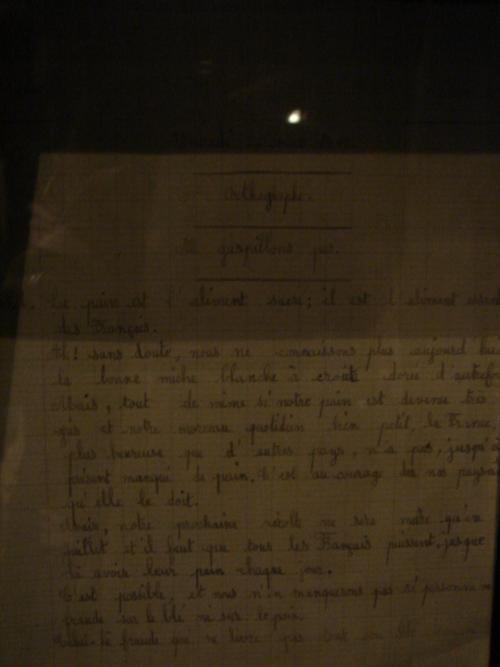 Orthographe.
Ne gaspillons pas.
Le pain est l'aliment sacré; il est l'aliment essen
des Français.
Ah! sans doute, nous ne connaissons plus aujourd'hui
la bonne miche blanche à croûte dorée d'autrefo
Mais, tout de même si notre pain est devenue très
gris et notre morceau quotidien bien petit, la France,
plus heureuse que d'autres pays, n'a pas, jusqu'à
présent manqué de pain. C'est au courage de nos paysa
qu'elle le doit.
Mais, notre prochaine récolt ne sera mûre qu'en
juillet et il faut que tous les Français puissent, jusque
là avoir leur pain chaque jour.
C'est possible, et nous n'en manquerons pas si personne ne
fraude sur le blé ne sur le pain.
Celui-là fraude que ne livre pas tout son blé